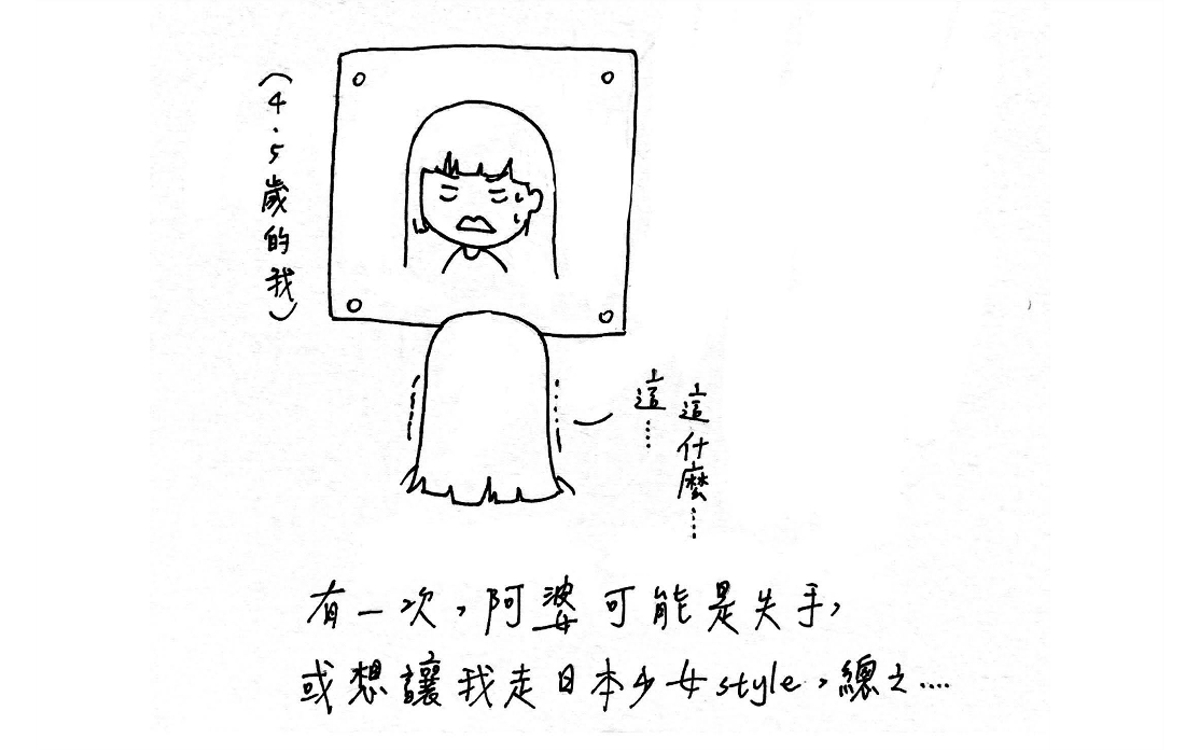 （4.5歲的我）
這……
這什麼……
有一次，阿婆可能是失手，
或想讓我走日本少女style，總之....